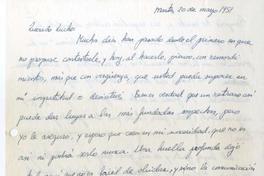 Manta, 20 de mayo 1951
Querido Lucho:
Muchos días han pasado desde el primero en que
me propuse contestarle, y hoy, al hacerlo, pienso, con remordi-
mientos, más que con vergüenza, que usted puede suponer en
mí ingratitud o desinterés. Es muy verdad que un retraso así
puede dar lugar a las más fundadas sospechas, pero
yo le aseguro, y espero que crea en mi sinceridad, que no es
así ni podrá serlo nunca. Una huella profunda dejó
en mí la comunicación